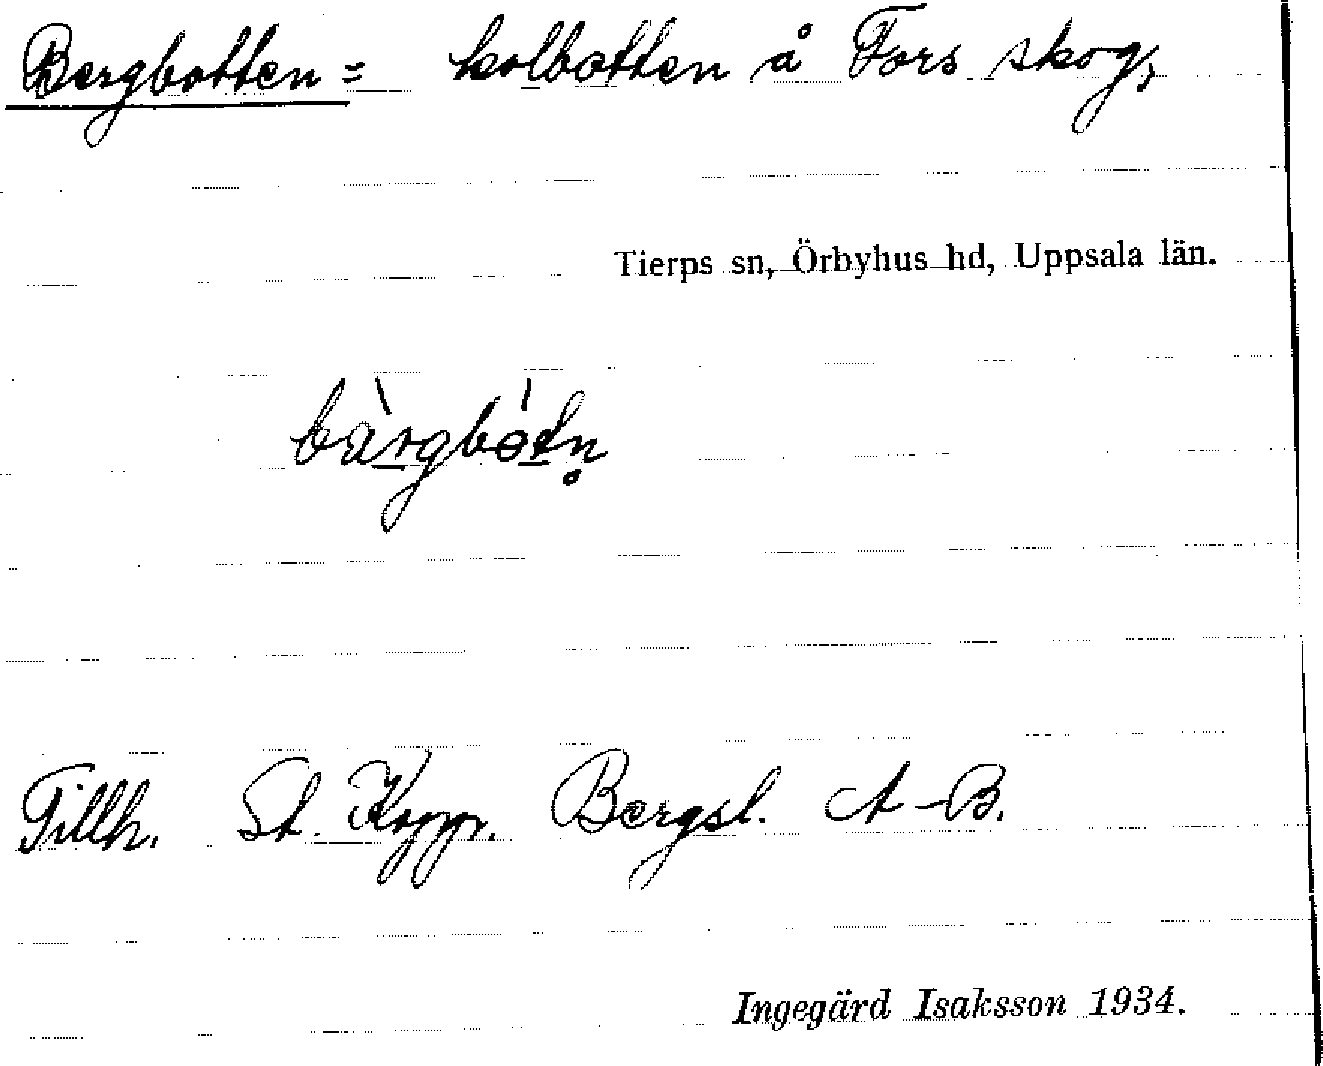 Bergbotten = kolbotten å Fors skog,
Tierps sn, Örbyhus hd, Uppsala län.
bàrgbòtn̥
Tillh. St. Koppr. Bergsl. A-B.
Ingegärd Isaksson 1934.